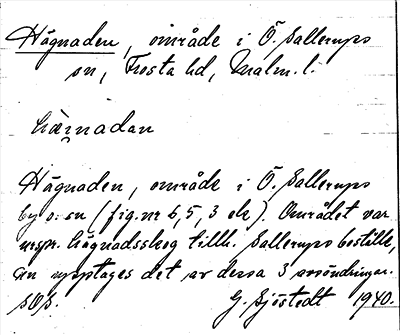 Hägnaden, område i Ö. Sallerups
sn, Frosta hd, Malm. l.
hæŋnadan
Hägnaden, område i Ö. Sallerups
by o. sn (fig. nr 6, 5, 3 etc). Området var
urspr. hägnadsskog tillh. Sallerups boställe,
nu upptages det av dessa 3 avsöndringar.
G. Sjöstedt 1940.